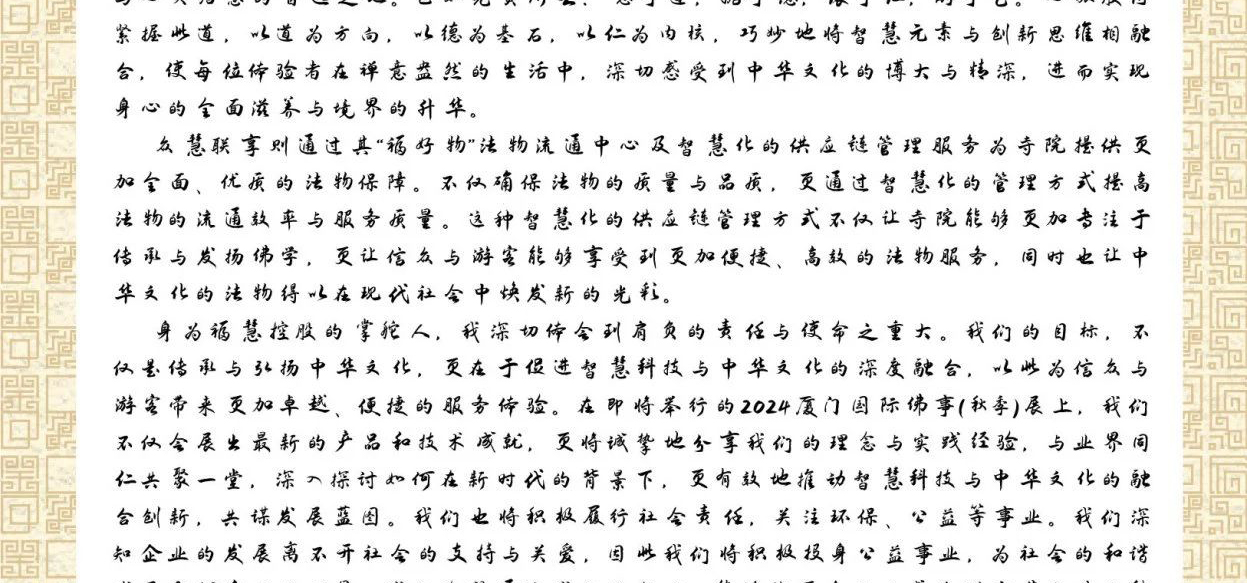 紧握此道，以道为方向，以德为基石，以仁为内核，巧妙地将智慧元素与创新思维相融
合，使每位体验者在禅意盎然的生活中，深切感受到中华文化的博大与精深，进而实现
身心的全面滋养与境界的升华。
众慧联享则通过其“福好物”法物流通中心及智慧化的供应链管理服务为寺院提供更
加全面、优质的法物保障。不仅确保法物的质量与品质，更通过智慧化的管理方式提高
法物的流通效率与服务质量。这种智慧化的供应链管理方式不仅让寺院能够更加专注于
传承与发扬佛学，更让信众与游客能够享受到更加便捷、高效的法物服务，同时也让中
华文化的法物得以在现代社会中焕发新的光彩。
身为福慧控股的掌舵人，我深切体会到肩负的责任与使命之重大。我们的目标，不
仅是传承与弘扬中华文化，更在于促进智慧科技与中华文化的深度融合，以此为信众与
游客带来更加卓越、便捷的服务体验。在即将举行的2024厦门国际佛事(秋季)展上，我们
不仅会展出最新的产品和技术成就，更将诚挚地分享我们的理念与实践经验，与业界同
仁共聚一堂，深入探讨如何在新时代的背景下，更有效地推动智慧科技与中华文化的融
合创新，共谋发展蓝图。我们也将积极履行社会责任，关注环保、公益等事业。我们深
知企业的发展离不开社会的支持与关爱，因此我们将积极投身公益事业，为社会的和谐